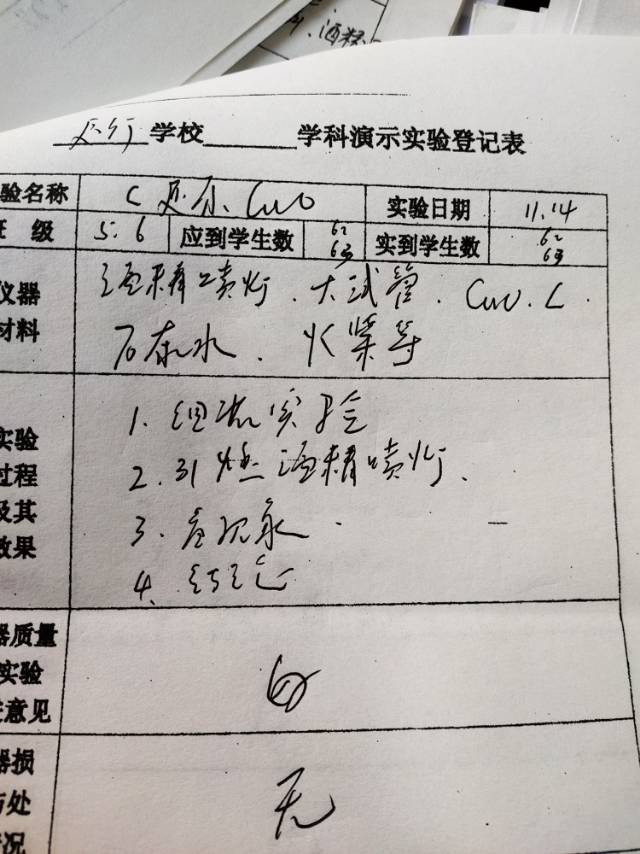 酒精
学校______学科演示实验登记表
验名称 C 还原 CuO 实验日期 11.14
级 5.6 应到学生数 62 63 实到学生数 62 63
仪器 酒精喷灯.大试管.CuO.C.
材料 石灰水.火柴等
1.组装实验
实验 2.引燃酒精喷灯.
过程
及其 3.看现象.
效果 4.结论
器质量
实验
意见
器损 无
与处
情况